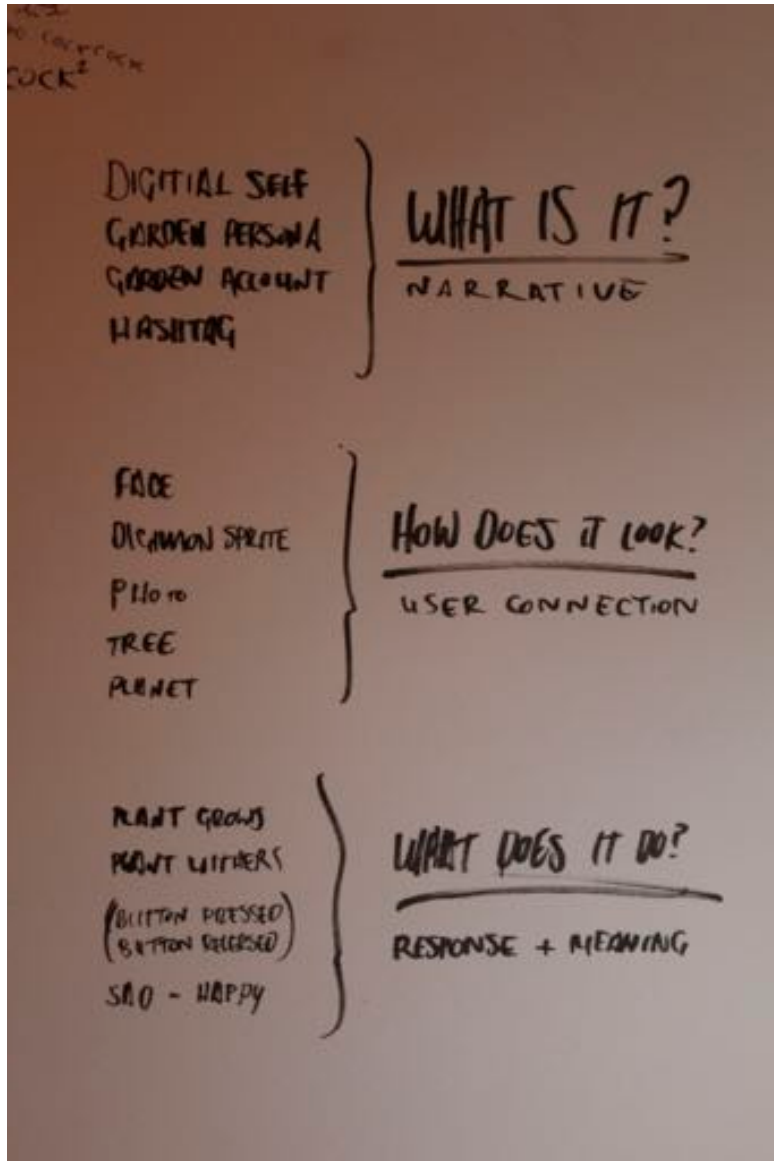 COCK²
DIGITIAL SELF
GARDEN PERSONA
GARDEN ACCOUNT
HASHTAG
WHAT IS IT?
NARRATIVE
FACE
SPRITE
PHOTO
TREE
PLANET
HOW DOES IT LOOK?
USER CONNECTION
PLANT GROWS
PLANT WITHERS
(BUTTON PRESSED)
(BUTTON RELEASED)
SAD - HAPPY
WHAT DOES IT DO?
RESPONSE + MEANING